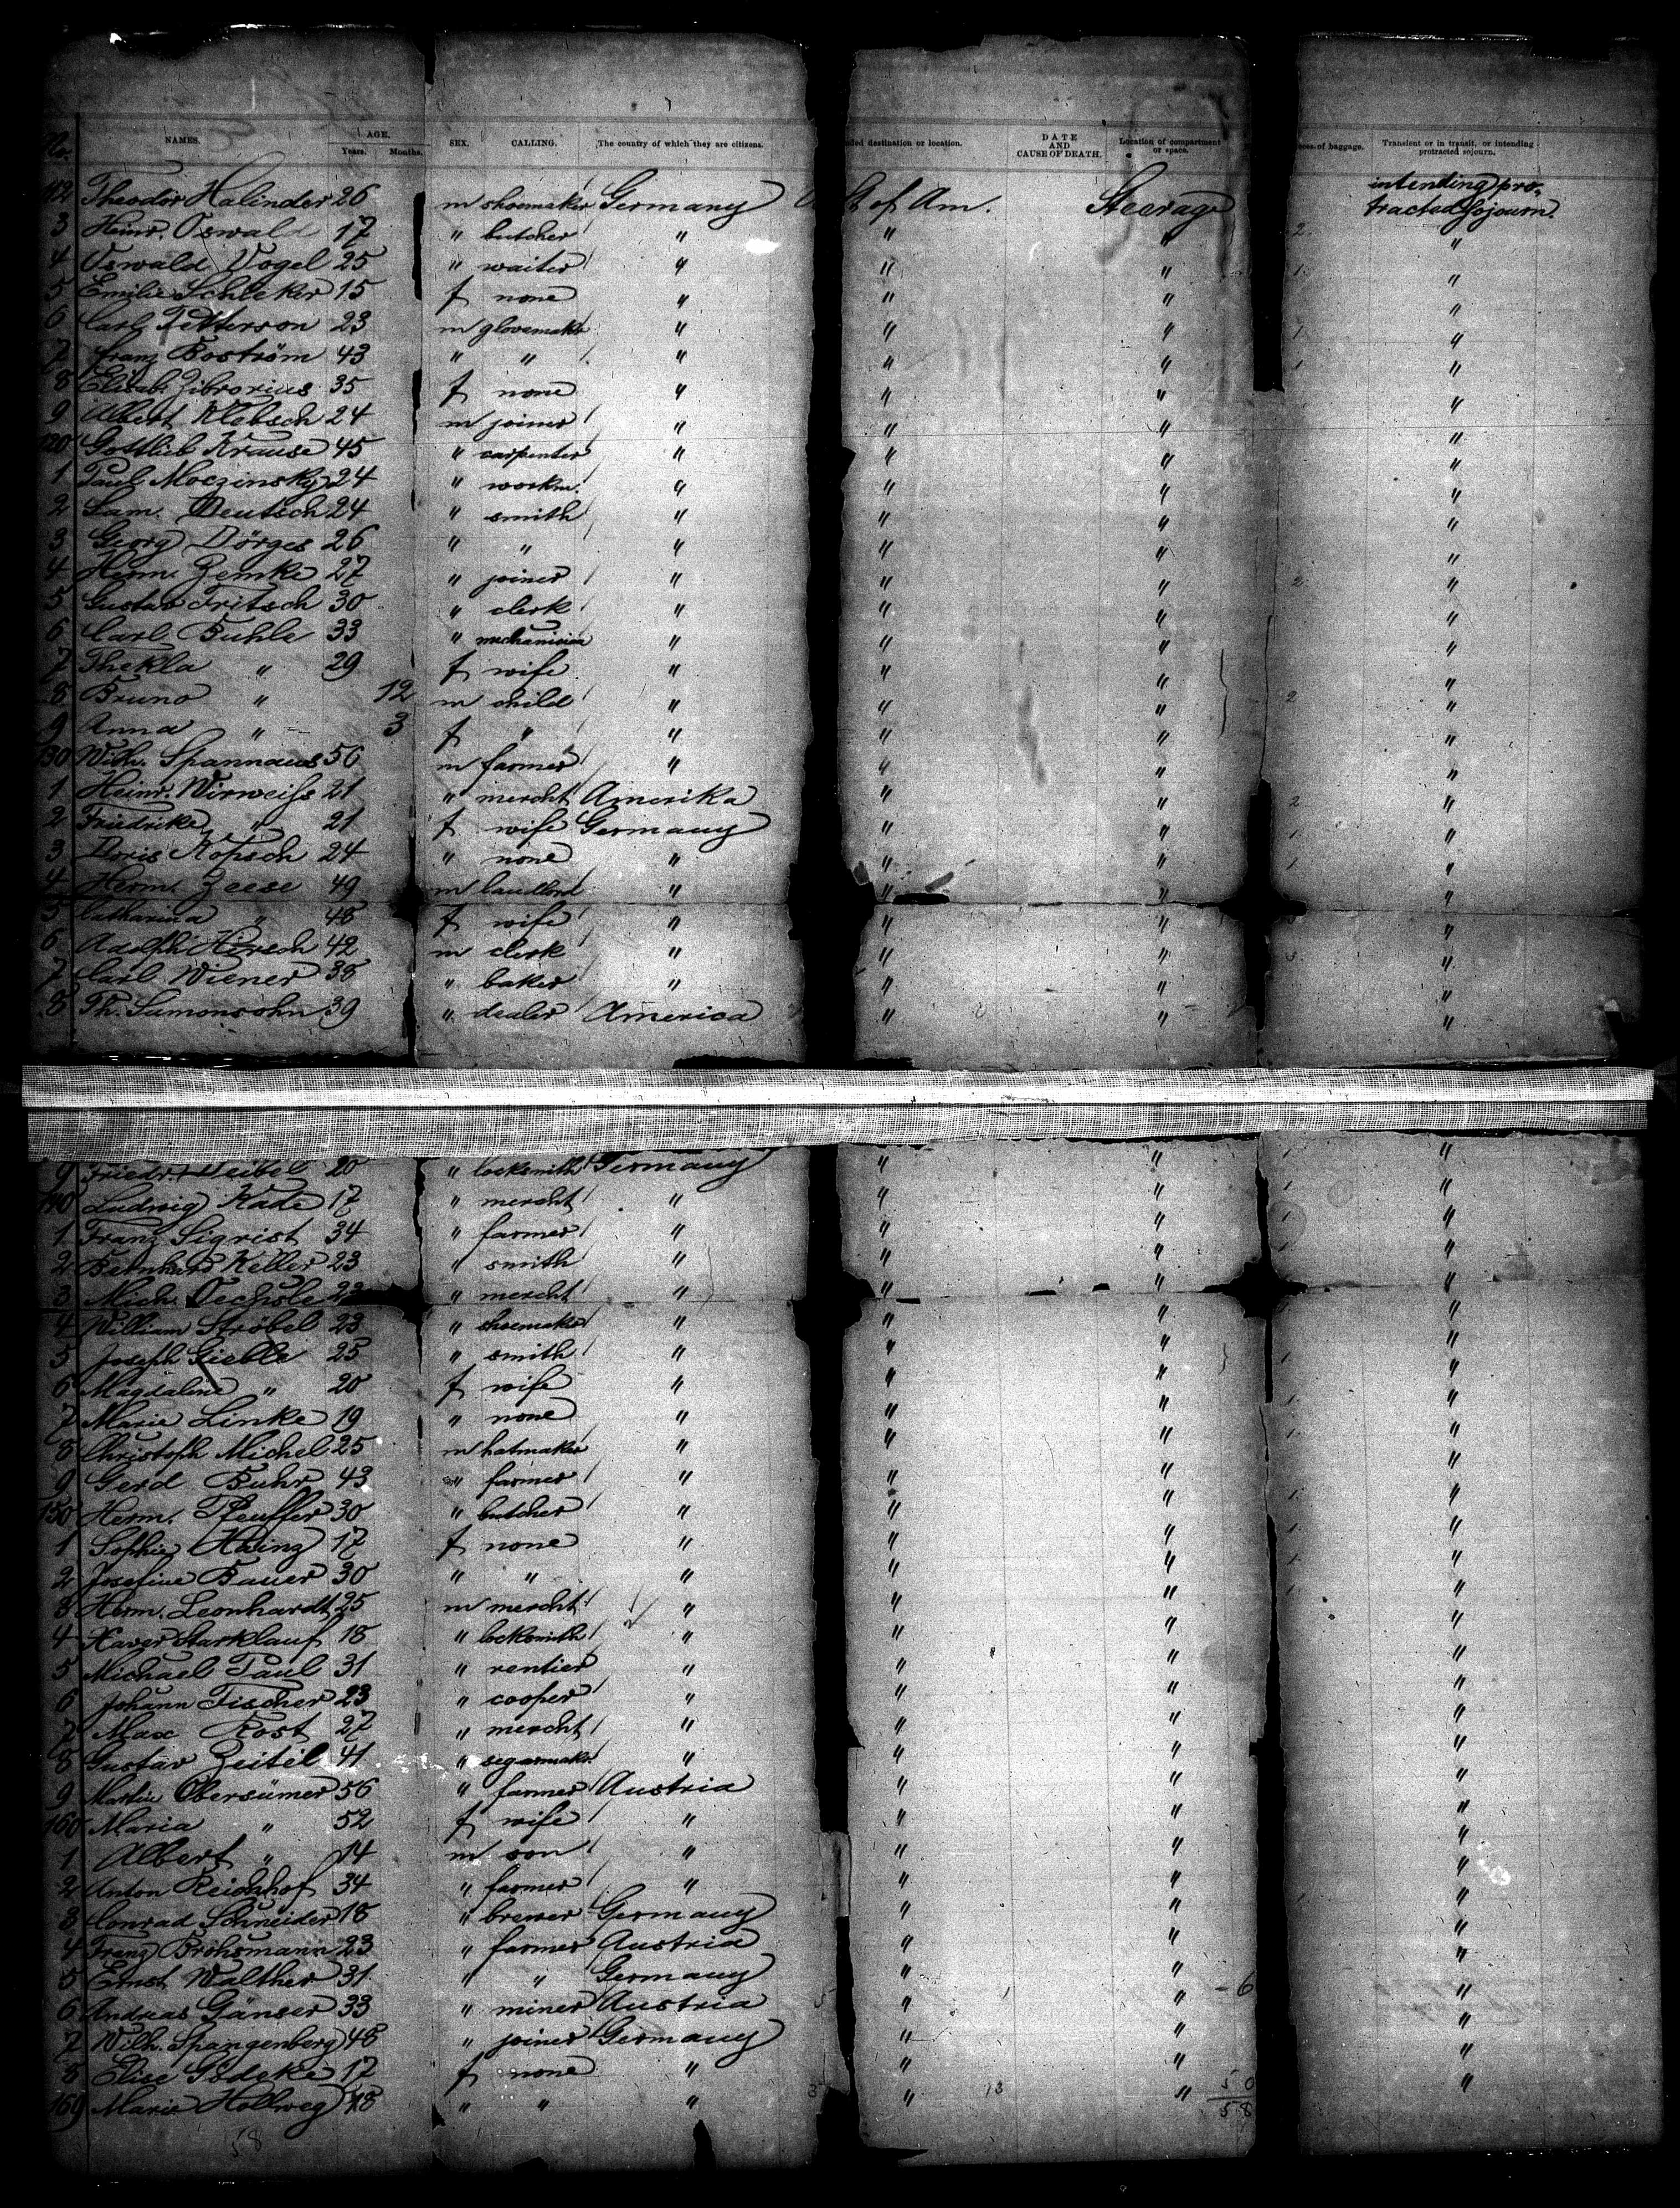 No. NAMES. AGE. Years. Months. SEX. CALLING. The country of which they are citizens. destination or location. DATE AND CAUSE OF DEATH. Location of compartment or space. of baggage. Transient or in transit, or intending protracted sojourn.
112 Theodor Halinder 26 m shoemaker Germany St of Am. Steerage intending pro- tracted Sojourn.
3 Heinr. Oswald 17 " butcher " " " 2 "
4 Oswald Vogel 25 " waiter " " " 1 "
5 Emilie Schleker 15 f none " " " "
6 Carl Petterson 23 m glovemaker " " " 1 "
7 Franz Boström 43 " " " " " 1 "
8 Elisab. Zibrorius 35 f none " " " "
9 Albert Klebsch 24 m joiner " " " "
120 Gottlieb Krause 45 " carpenter " " " "
1 Paul Moczinsky 24 " workm. " " " "
2 Sam. Deutsch 24 " smith " " " "
3 Georg Dörges 26 " " " " " "
4 Herm. Zemke 27 " joiner " " " 2 "
5 Gustav Fritsch 30 " clerk " " " "
6 Carl Buhle 33 " mechanician " " " "
7 Thekla " 29 f wife " " " "
8 Bruno " 12 m child " " " 2 "
9 Anna " 3 f " " " " "
130 Wilh. Spannaus 56 m farmer " " " "
1 Heinr. Wirweiss 21 " mercht Amerika " " 2 "
2 Friedrike " 21 f wife Germany " " 1 "
3 Doris Kopsch 24 " none " " " 1 "
4 Herm. Zeese 49 m landlord " " " "
5 Catharina " 48 f wife " " " "
6 Adolph Hirsch 42 m clerk " " " "
7 Carl Wiener 38 " baker " " " "
8 Th. Samonsohn 39 " dealer America " " "
9 Friedr. Deibel 20 " locksmith Germany " " 1 "
140 Ludwig Kade 17 " mercht " " " 1 "
1 Franz Sigrist 34 " farmer " " " 1 "
2 Bernhard Keller 23 " smith " " " 1 "
3 Mich. Oechsle 23 " mercht " " " "
4 William Ströbel 23 " shoemaker " " " "
5 Joseph Gieble 25 " smith " " " 1 "
6 Magdaline " 20 f wife " " " 1 "
7 Marie Linke 19 " none " " " 1 "
8 Christoph Michel 25 m hatmaker " " " "
9 Gerd Buhr 43 " farmer " " " 1 "
150 Herm. Pfeuffer 30 " butcher " " " 1 "
1 Sophie Hainz 17 f none " " " 1 "
2 Josefine Bauer 30 " " " " " 1 "
3 Herm. Leonhardt 25 m mercht " " " "
4 Xaver Starklauf 18 " locksmith " " " "
5 Michael Paul 31 " rentier " " " "
6 Johann Fischer 23 " cooper " " " "
7 Max Rost 27 " mercht " " " "
8 Gustav Zeitel 41 " segarmakr. " " " "
9 Martin Obersümer 56 " farmer Austria " " "
160 Maria " 52 f wife " " " "
1 Albert " 14 m son " " " "
2 Anton Reichhof 34 " farmer " " " 1 "
3 Conrad Schneider 18 " brewer Germany " " "
4 Franz Brohsmann 23 " farmer Austria " " "
5 Ernst Walther 31 " " Germany " " 6 "
6 Andreas Gänser 33 " miner Austria 5 " " "
7 Wilh. Spangenberg 48 " joiner Germany " " "
8 Elise Gödeke 17 f none " " " "
169 Marie Hollweg 18 " " " 3 " 13 " 50
58
58